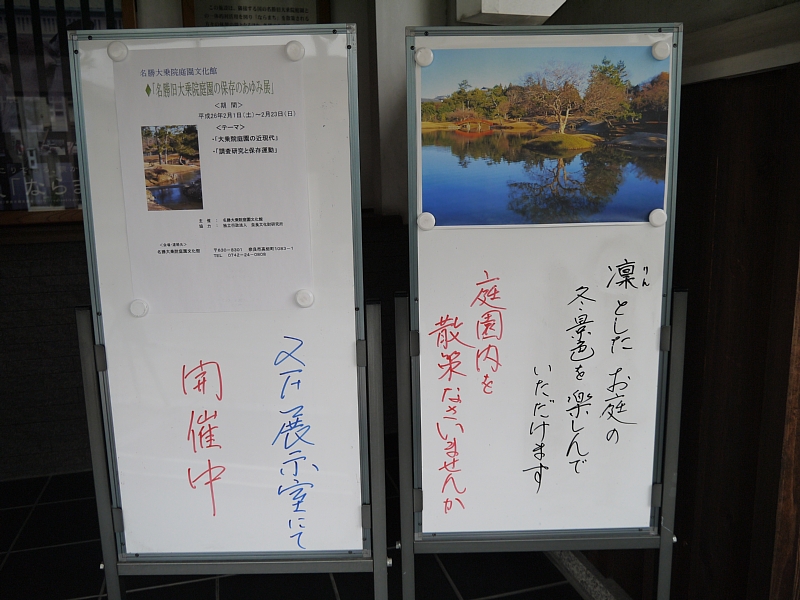 名勝大乗院庭園文化館
◆「名勝旧大乗院庭園の保存のあゆみ展」
＜期　間＞
平成26年2月1日(土)～2月23日(日)
＜テーマ＞
・「大乗院庭園の近現代」
・「調査研究と保存運動」
主　催 ： 名勝大乗院庭園文化館
協　力 ： 独立行政法人　奈良文化財研究所
名勝大乗院庭園文化館　〒630-8301　奈良市高畑町1083-1
TEL　0742-24-0808
2F展示室にて
開催中
凜とした お庭の
りん
冬景色を 楽しんで
いただけます
庭園内を
散策なさいませんか